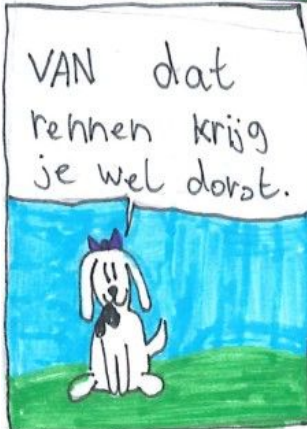 VAN dat
rennen krijg
je wel dorst.